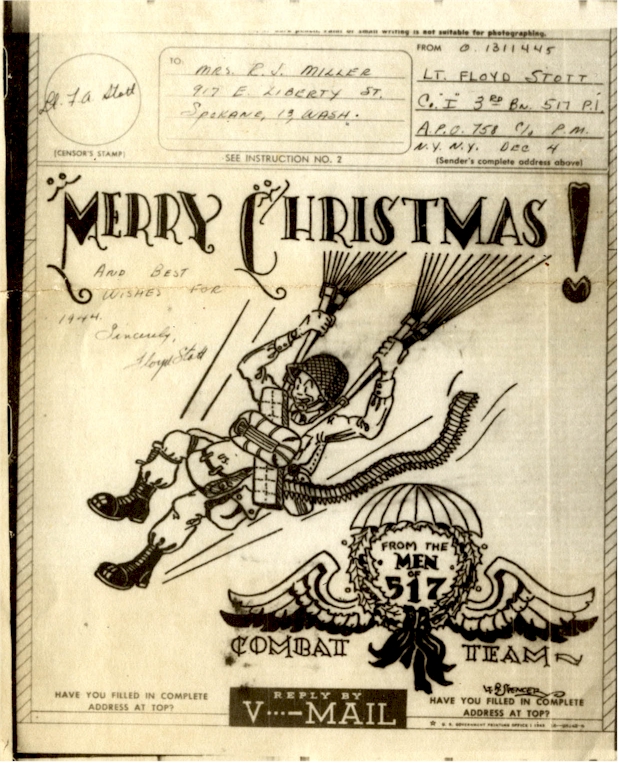 small writing is not suitable for photographing.
Lt. F A Stott
(CENSOR'S STAMP)
TO:
MRS. R. J. MILLER
917 E. LIBERTY ST.
SPOKANE, 13, WASH.
SEE INSTRUCTION NO. 2
FROM O. 1311445
LT. FLOYD STOTT
Co. "I" 3RD BN. 517 P.I.
A.P.O. 758 C/o P.M.
N.Y. N.Y. DEC 4
(Sender's complete address above)
MERRY CHRISTMAS!
AND BEST
WISHES FOR
1944.
Sincerely,
Floyd Stott
FROM THE
MEN
OF
517
COMBAT TEAM
Lt. B SPENCER
HAVE YOU FILLED IN COMPLETE
ADDRESS AT TOP?
REPLY BY
V···—MAIL
HAVE YOU FILLED IN COMPLETE
ADDRESS AT TOP?
U. S. GOVERNMENT PRINTING OFFICE : 1943